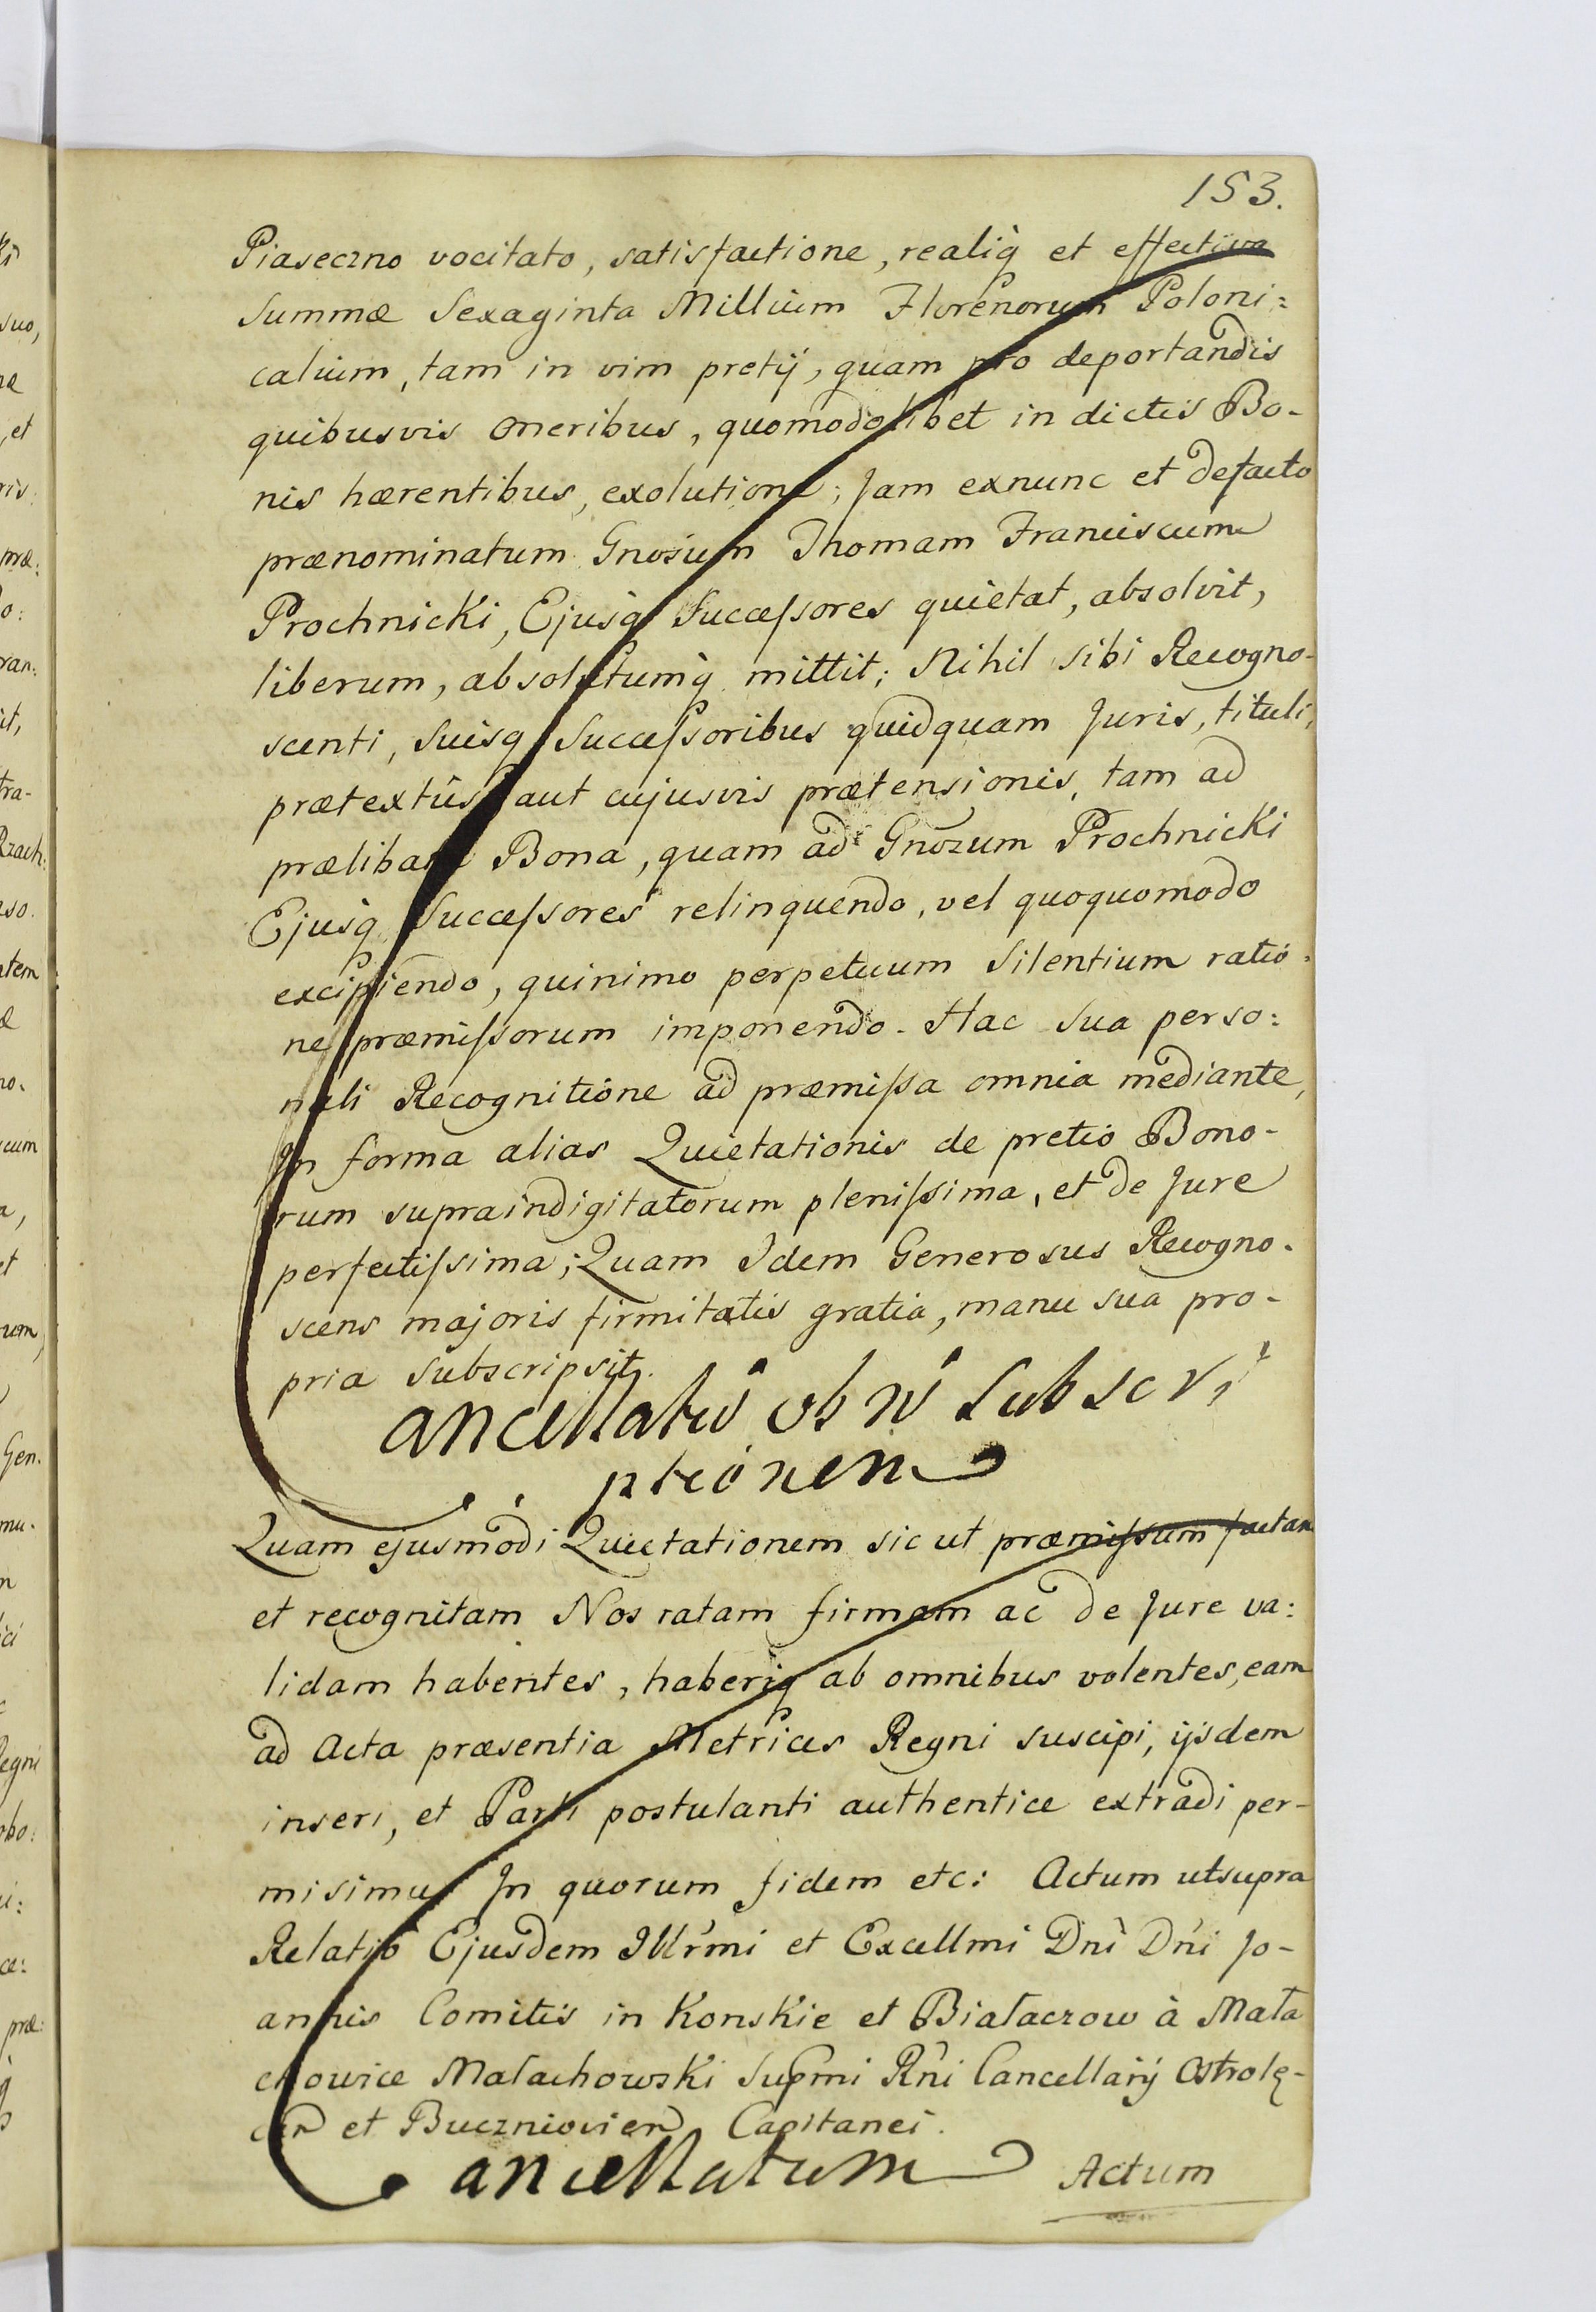 153.
Piaseczno vocitato, satisfactione, realiq̀ et effectiva
Summæ Sexaginta Millium Florenorum Poloni:
calium, tam in vim pretij, quam pro deportandis
quibusvis oneribus, quomodolibet in dictis Bo-
nis hærentibus, exolutione; Jam exnunc et defacto
prænominatum Gnosum Thomam Franciscum
Prochnicki, Ejusq̀ Succeſsores quietat, absolvit,
liberum, absolutumq̀ mittit; Nihil sibi Recogno-
scenti, Suisq̀ Succeſsoribus quidquam Juris, tituli,
prætextûs, aut cujusvis prætensionis, tam ad
prælibata Bona, quam ad Gnōzum Prochnicki
Ejusq̀ Succeſsores relinquendo, vel quoquomodo
excipiendo, quinimo perpetuum Silentium ratio:
ne præmiſsorum imponendo. Hac Sua perso:
nali Recognitione ad præmiſsa omnia mediante,
In forma alias Quietationis de pretio Bono-
rum supraindigitatorum pleniſsima, et de Jure
perfectiſsima; Quam Idem Generosus Recogno-
scens majoris firmitatis gratia, manu sua pro-
pria Subscripsit.
Cancellatũ ob ñ Subscri
ptionem
Quam ejusmodi Quietationem sic ut præmiſsum factam
et recognitam Nos ratam firmam ac de Jure va:
lidam habentes, haberiq̀ ab omnibus volentes, eam
ad Acta præsentia Metrices Regni suscipi, ijsdem
inseri, et Parti postulanti authentice extradi per-
misimus In quorum fidem etc: Actum utsupra
Relatio Ejusdem Illr̃mi et Excellmi Dnì Dñi Jo-
annis Comitis in Konskie et Białaczow à Mała
chowice Małachowski Supmi Rñi Cancellarij Ostrolę-
cen et Buczniovien Capitanei.
Cancellatum Actum